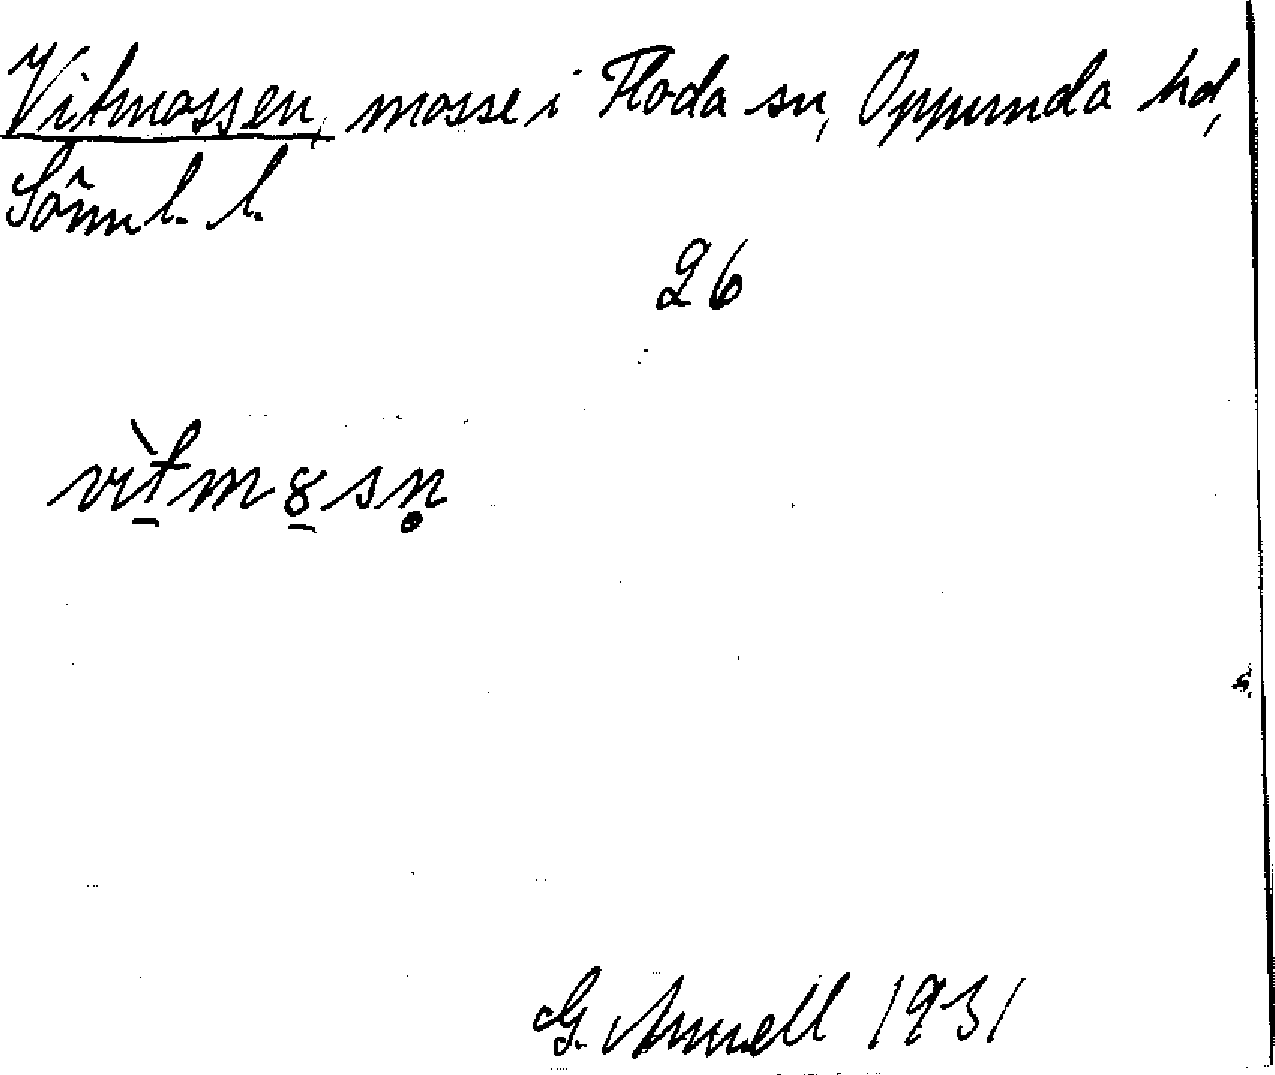 Vitmossen, mosse i Floda sn, Oppunda hd,
Sörml. l.
26
vìt̠m8̠sn̥
G. Arnell 1931